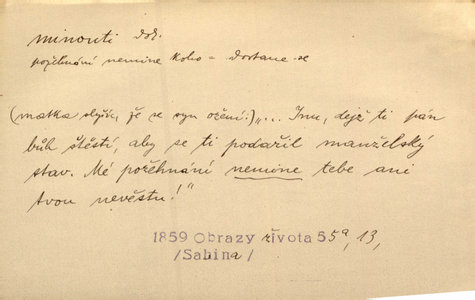 minouti dok.
požehnání nemine koho = dostane se
(matka slyšíc, že se syn ožení:) „... Inu, dejž ti pán
bůh štěstí, aby se ti podařil manželský
stav. Mé požehnání nemine tebe ani
tvou nevěstu!"
1859 Obrazy života 55a, 13,
/Sabina/